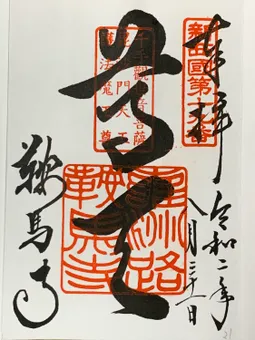 奉拝
令和二年
八月三十一日
新西國第十九番
尊天
千手觀音菩薩
毘沙門天王
護法魔王尊
雍州路
鞍馬寺
鞍馬寺